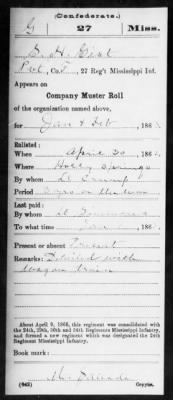 (Confederate.)
G 27 Miss.
S. H. Gist
Pvt, Co. G, 27 Reg't Mississippi Inf.
Appears on
Company Muster Roll
of the organization named above,
for Jan & Feb, 186
Enlisted:
When April 20, 186
Where Holly Springs
By whom Lt Crump
Period 3 yrs or the war
Last paid:
By whom
To what time Jan 1, 186
Present or absent Present
Remarks: Detailed with
wagon train
About April 9, 1865, this regiment was consolidated with
the 24th, 29th, 30th and 34th Regiments Mississippi Infantry,
and formed a new regiment which was designated the 24th
Regiment Mississippi Infantry.
Book mark:
(642) Copyist.